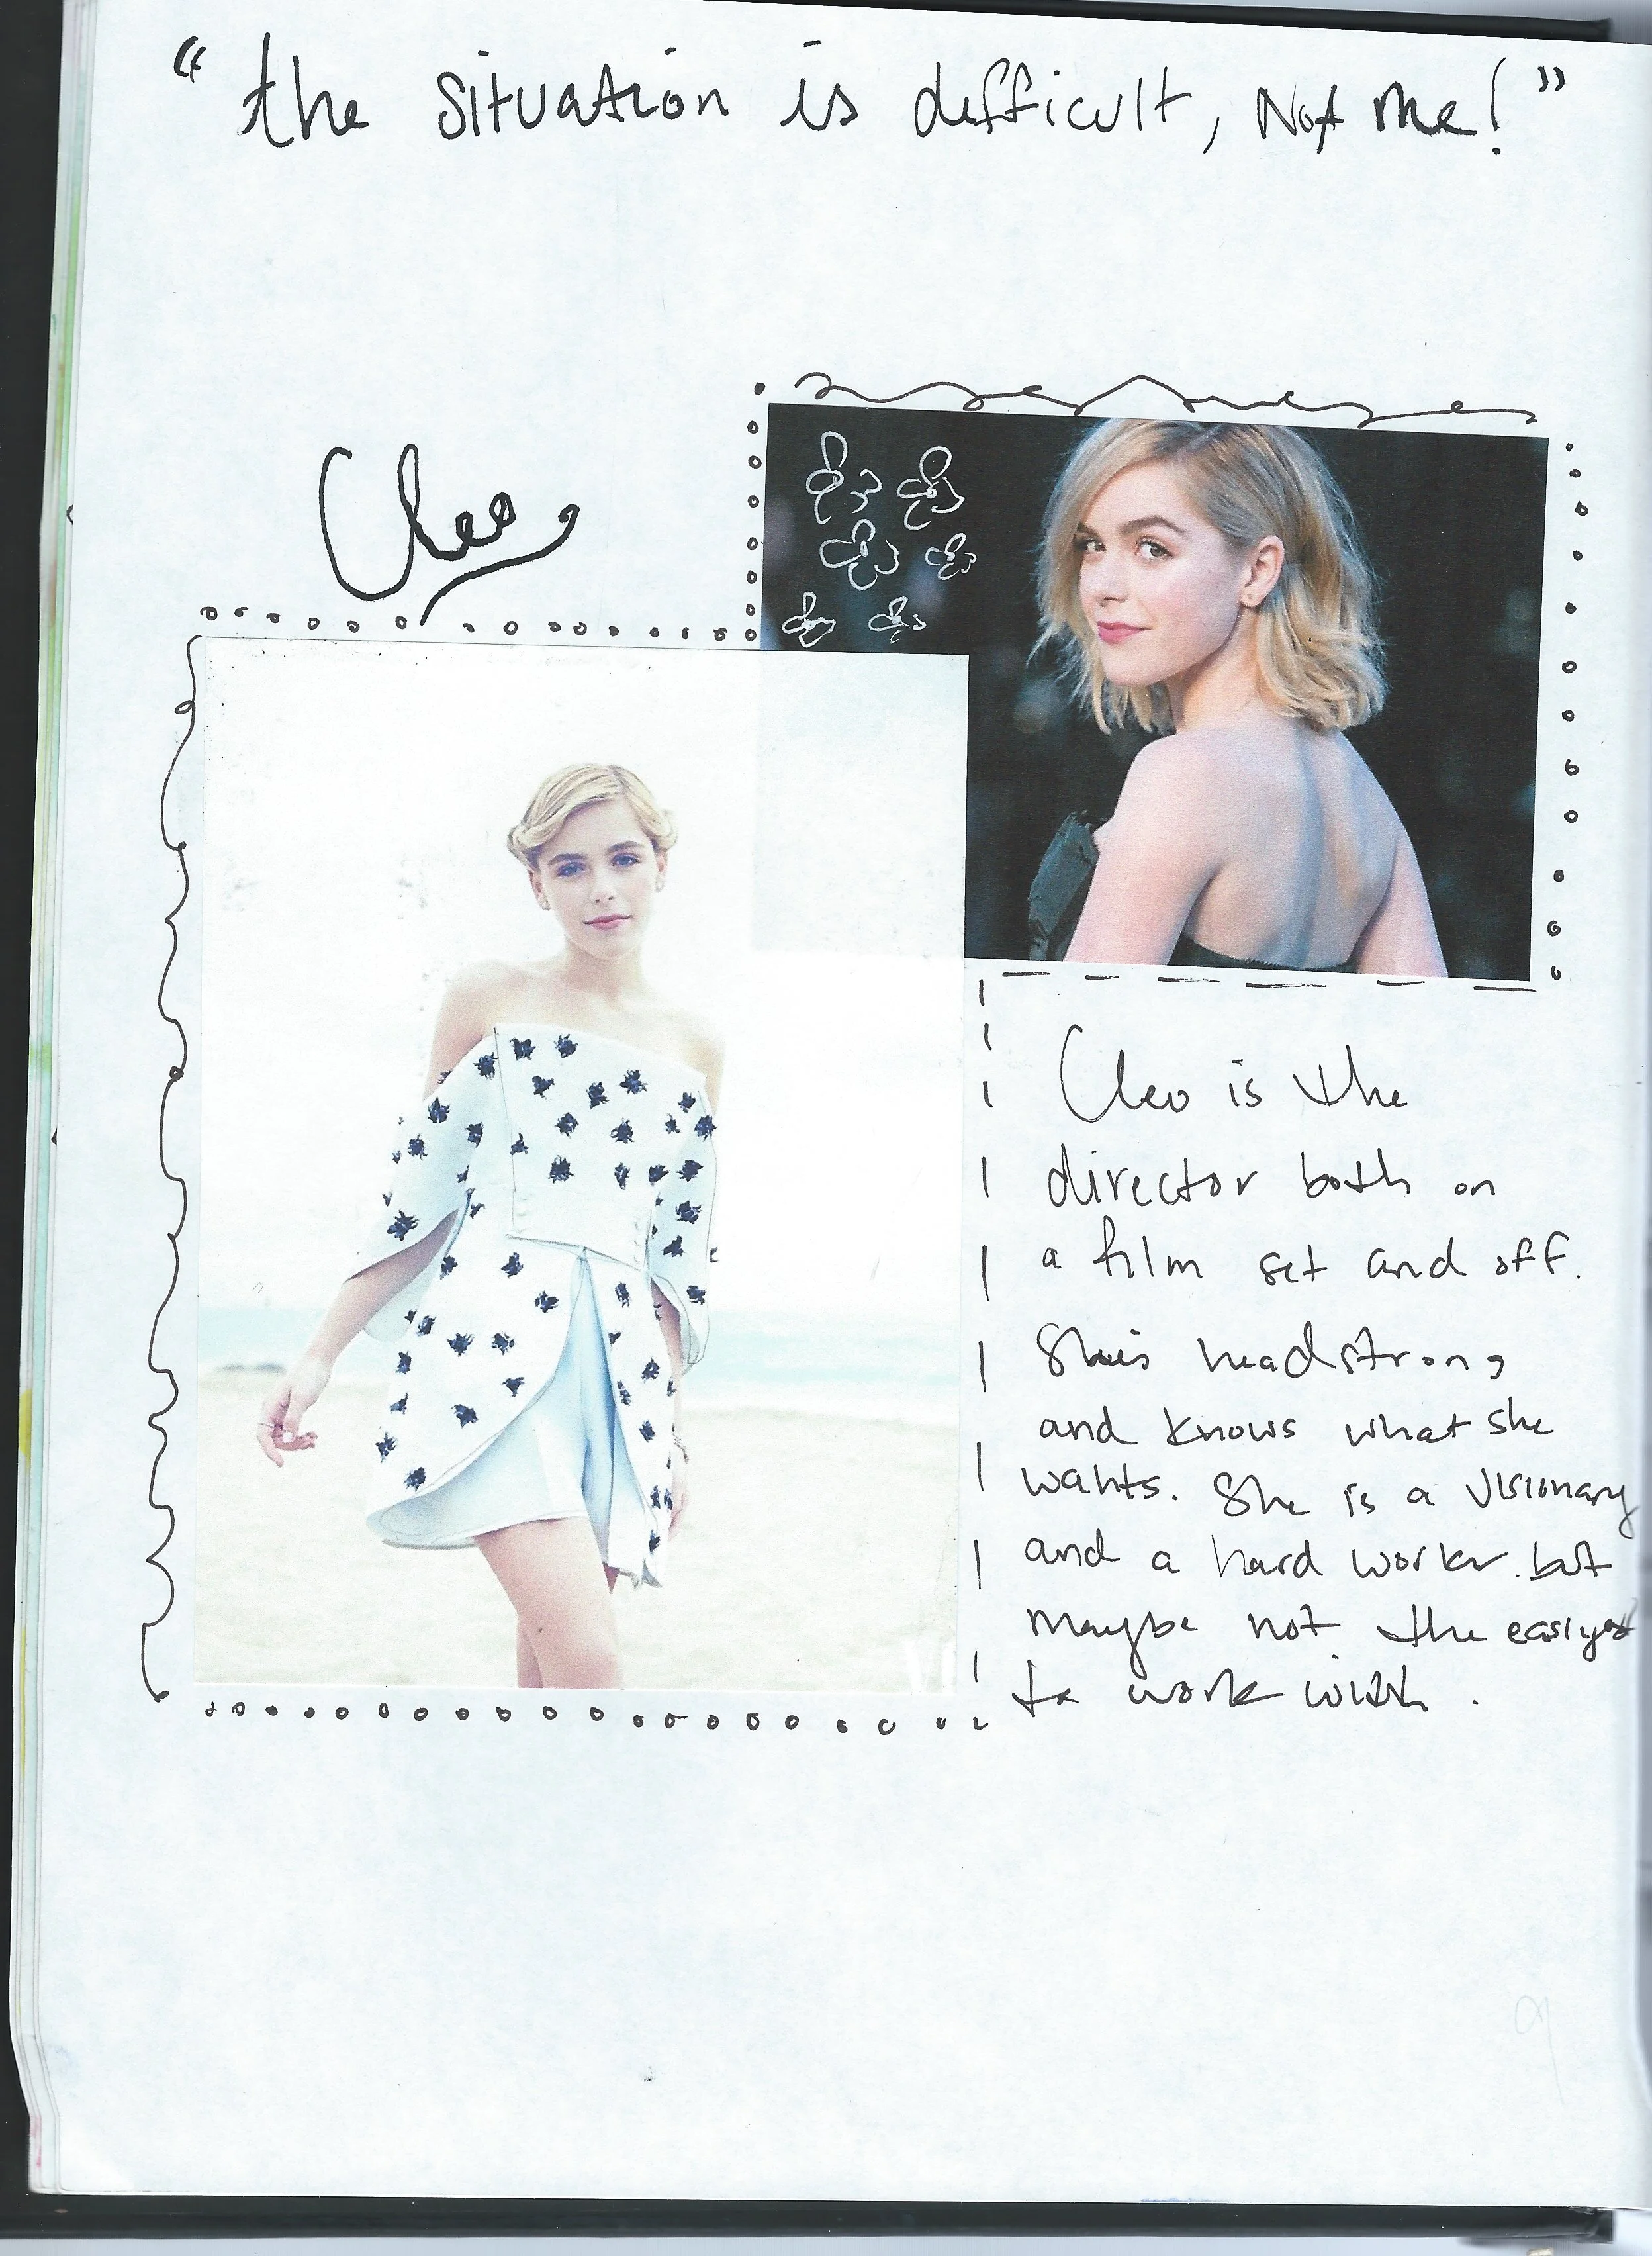 “the situation is difficult, Not me!”
Cleo
Cleo is the
director both on
a film set and off.
She's headstrong
and knows what she
wants. She is a visionary
and a hard worker. but
maybe not the easiyest
to work with.
9